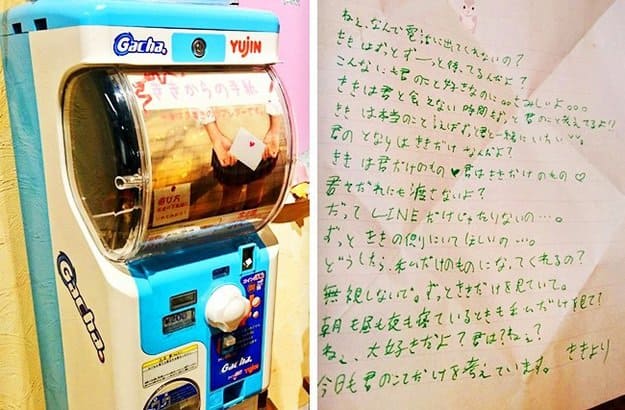 Gacha.
YUJIN
ききからの手紙
遊び方
Gacha.
Gacha.
YUJIN
ねぇ、なんで電話に出てくれないの？
ききはずっとずーっと待ってるんだよ？
こんなに君のこと好きなのに。。さみしいよ。。。
ききは君と会えない時間もずっと君のこと考えてるよ！！
ききは本当のこと言えばずっと君と一緒にいたい
君のとなりはききだけなんだよ？
ききは君だけのもの♥君はききだけのもの♡
君をだれにも渡さないよ？
だって LINEだけじゃたりないの…。
ずっとききの側にいてほしいの…。
どうしたら私だけのものになってくれるの？
無視しないで。ずっとききだけを見ていて。
朝も昼も夜も寝ているときも私だけを見て！
ねぇ、大好きだよ？君は？ねぇ？
今日も君のことだけを考えています。 ききより